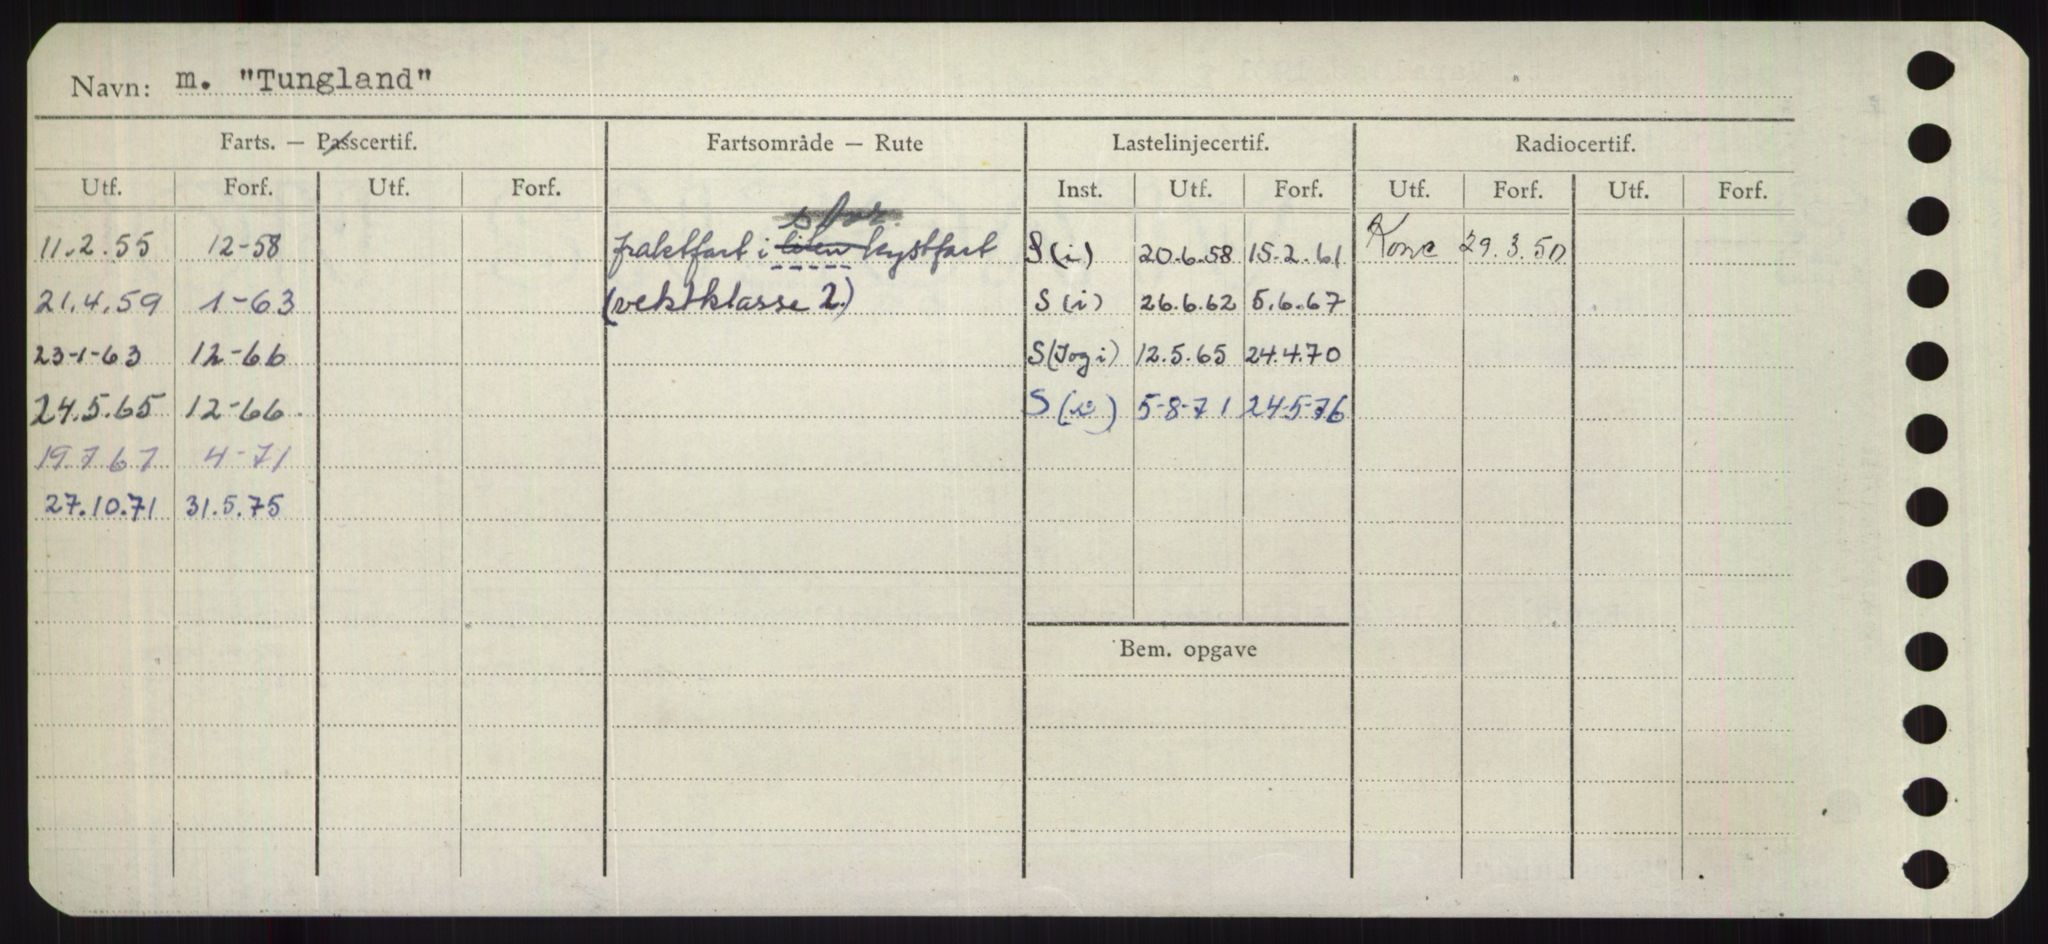 Navn: m. "Tungland"
Farts. — Passcertif. Fartsområde — Rute Lastelinjecertif. Radiocertif.
Utf. Forf. Utf. Forf. Inst. Utf. Forf. Utf. Forf. Utf. Forf.
stor
11.2.55 12-58 fraktfart i liten kystfart S (i) 20.6.58 15.2.61 29.3.50
21.4.59 1-63 (vektklasse 2.) S (i) 26.6.62 5.6.67
23-1-63 12-66 S (I og i) 12.5.65 24.4.70
24.5.65 12-66. S (i) 5-8-71 24-5-76
19.7.67 4-71
27.10.71 31.5.75
Bem. opgave